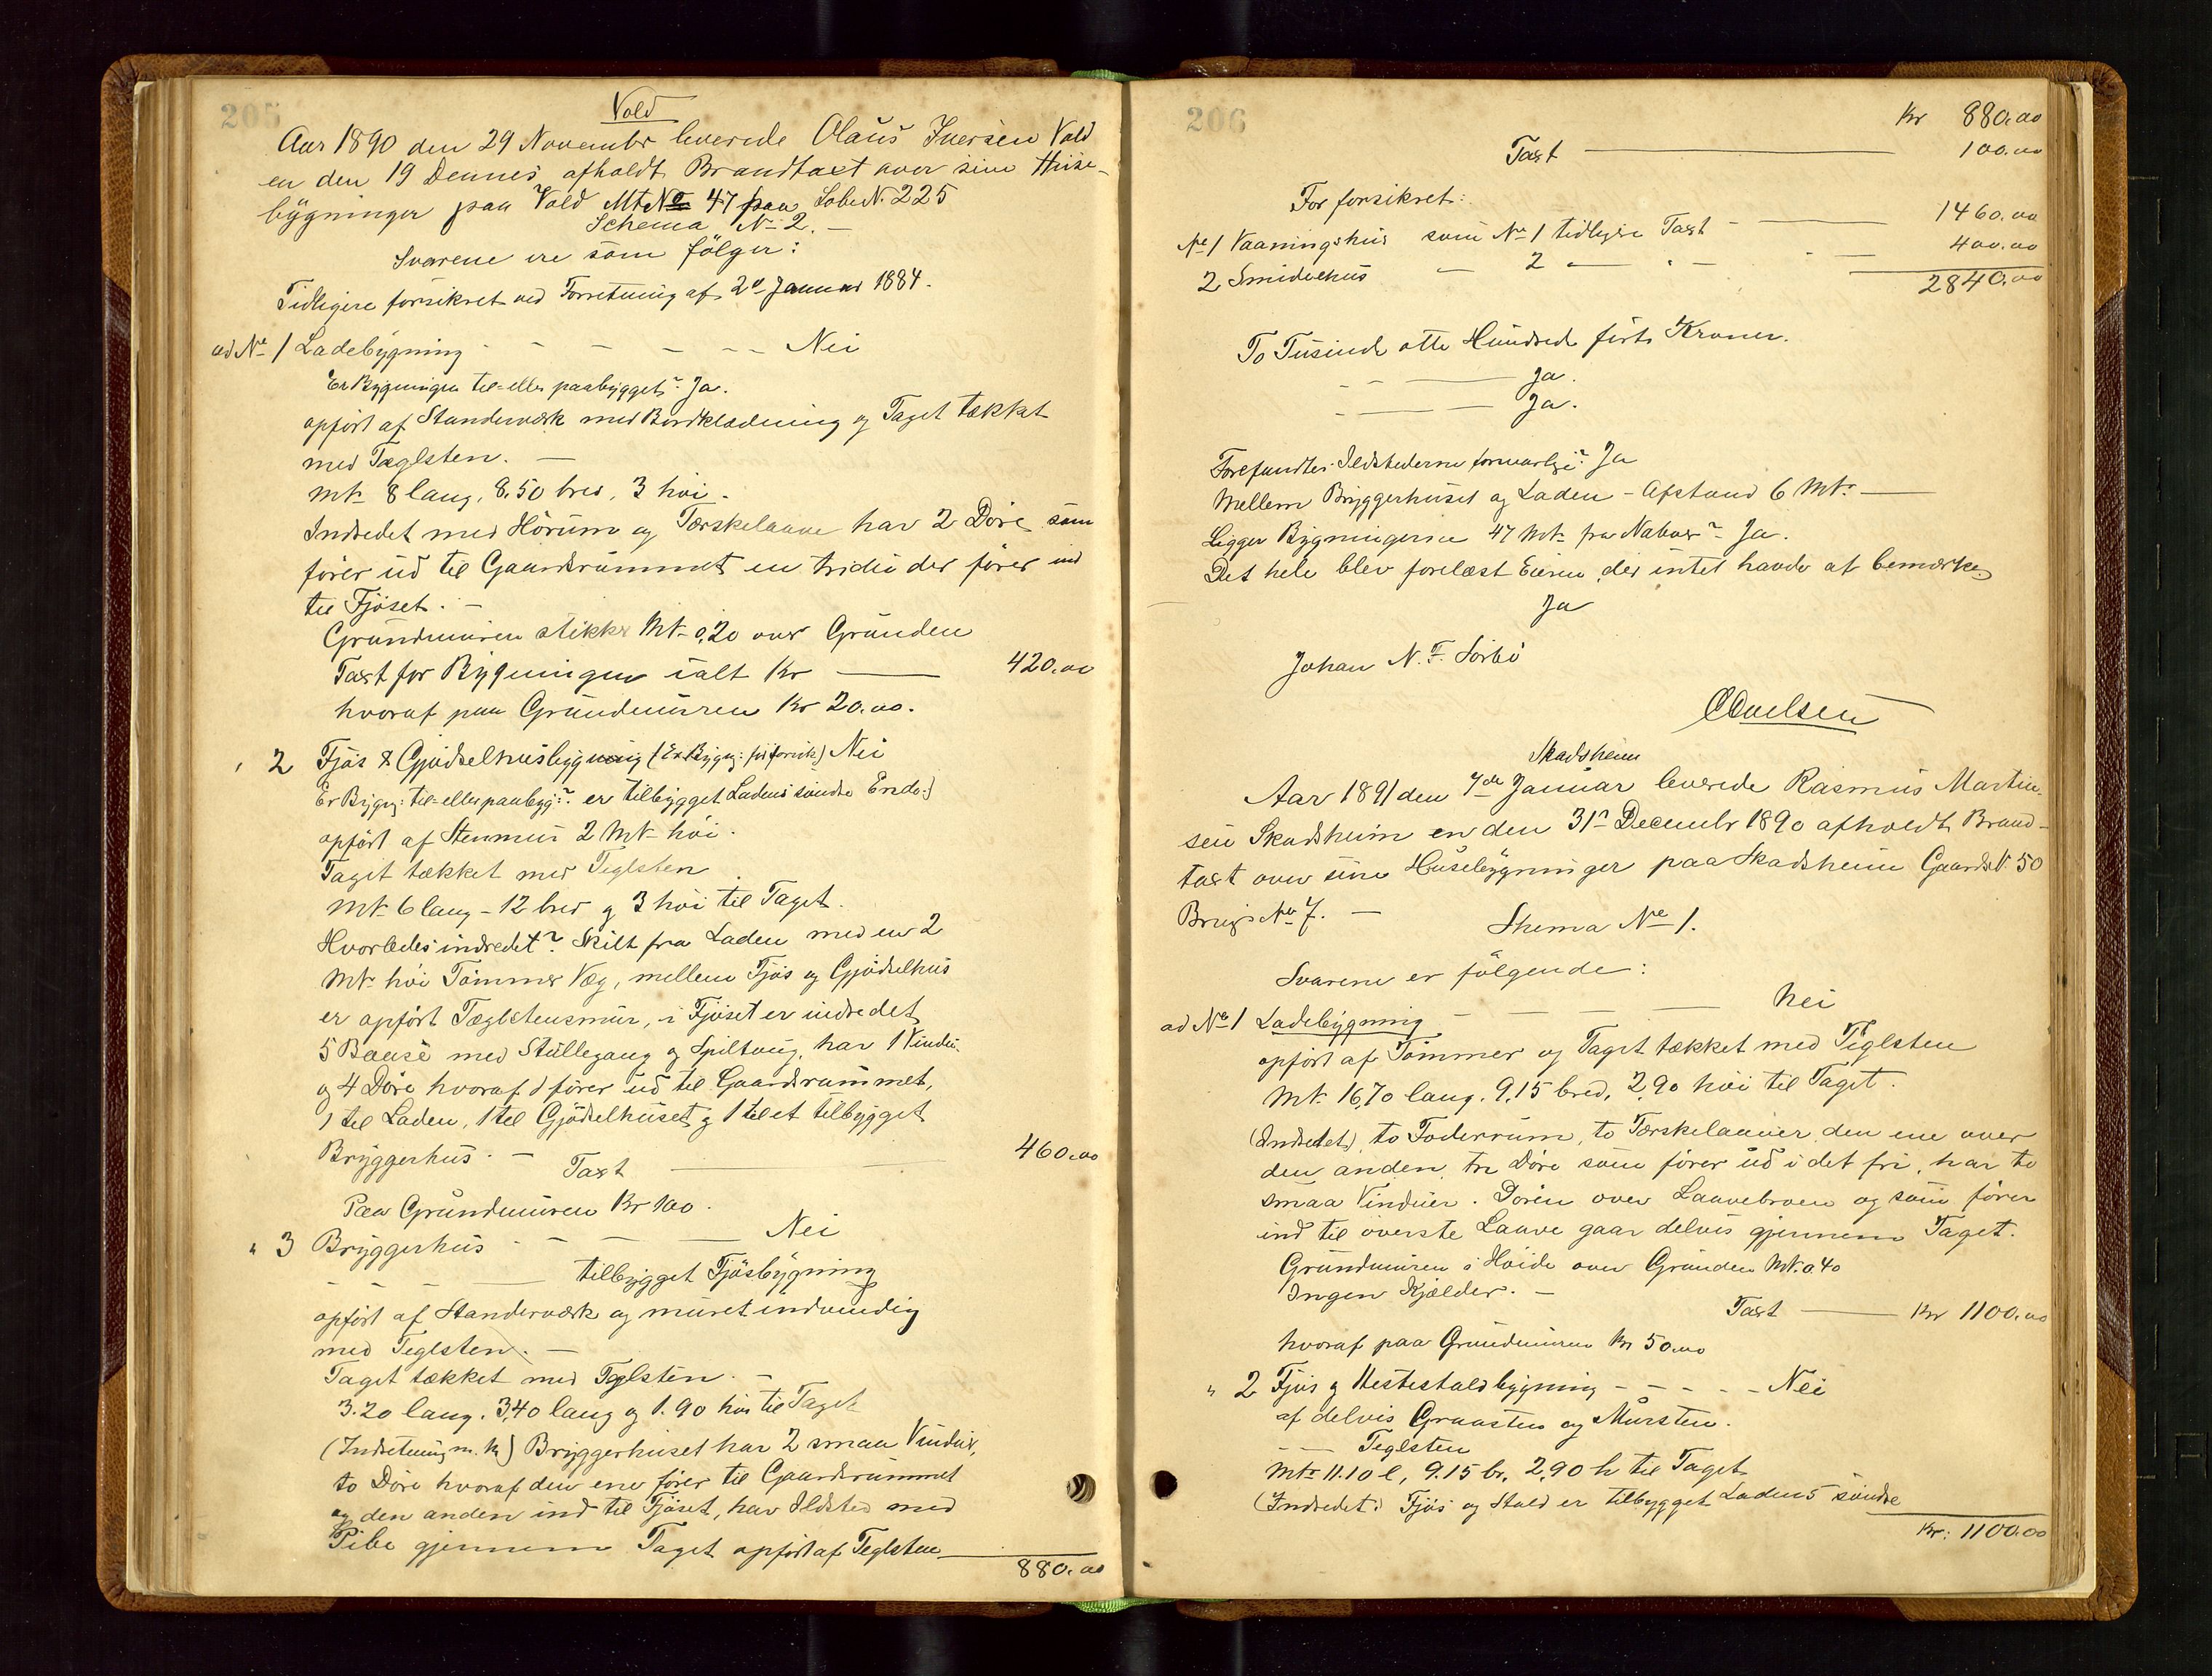 205
Vold
Aar 1890 den 29 Novembr leverede Olaus Iversen Vold
en den 19 Dennes afholdt Brandtaxt over sine Huse-
bygninger paa Vold Mt No 47 paa LøbeN. 225
Schema No 2. —
Svarene ere som følger:
Tidligere forsikret ved Forretning af 2den Januar 1884.
ad No 1 Ladebygning - - - - - - Nei
Er Bygningen til- eller paabygget? Ja.
opført af Standerværk med Bordklædning og Taget tækket
med Tæglsten. —
Mt. 8 lang, 8,50 bred, 3 høi.
Indredet med Hørum og Tærskelaave har 2 Døre som
fører ud til Gaardsrummet en tridie der fører ind
til Fjøset. —
Grundmuren stikker Mt. 0,20 over Grunden
Taxt for Bygningen ialt Kr — 420.00
hvoraf paa Grundmuren Kr 20.00.
" 2 Fjøs & Gjødselhusbygning (Er Bygg: før forsik) Nei
Er Bygg: til- eller paabyg:? er tilbygget Ladens søndre Ende.)
opført af Stenmur 2 Mt. høi.
Taget tækket med Teglsten
Mt. 6 lang - 12 bred og 3 høi til Taget.
Hvorledes indredet? Skilt fra Laden med en 2
Mt. høi Tømmer Væg, mellem Fjøs og Gjødselhus
er opført Tæglstensmur, i Fjøset er indredet
5 Baase med Stullegang og Spiltoug, har 1 Vindu
og 4 Døre hvoraf 1 fører ud til Gaardsrummet,
1 til Laden, 1 til Gjødselhuset og 1 til et tilbygget
Bryggerhus. —
Taxt — 460.00
Paa Grundmuren Kr 100.
" 3 Bryggerhus - - - — Nei
- - - — tilbygget Fjøsbygning
opført af Standerværk og muret indvendig
med Teglsten. —
Taget tækket med Teglsten. —
3.20 lang. 3,40 lang og 1.90 høi til Taget
(Indretning m. M) Bryggerhuset har 2 smaa Vinduer,
to Døre hvoraf den ene fører til Gaardsrummet
og den anden ind til Fjøset, har Ildsted med
Pibe gjennem Taget opført af Teglsten
880.00
206
Kr 880.00
Taxt — 100.00
For forsikret:
No 1 Vaaningshus som No 1 tidligere Taxt — 1460.00
2 Smidiehus — 2 — " — 400.00
2840.00
To Tusinde otte Hundrede førti Kroner.
- - — Ja.
- - — Ja.
Forefandtes Ildstederne forsvarlige? Ja
Mellem Bryggerhuset og Laden - Afstand 6 Mt. —
Ligger Bygningerne 47 Mt. fra Naboer? Ja.
Det hele blev forelæst Eieren, der intet havde at bemærke
Ja
Johan N. F. Sørbø
Skadsheim
Aar 1891 den 7de Januar leverede Rasmus Martin-
sen Skadsheim en den 31te Decembr 1890 afholdt Brand-
taxt over sine Husebygninger paa Skadsheim GaardsN. 50
Brugs No 7. —
Shema No 1.
Svarene er følgende:
ad No 1 Ladebygning - - - - — Nei
opført af Tømmer og Taget tækket med Tæglsten
Mt. 16,70 lang. 9,15 bred, 2,90 høi til Taget.
(Indredet) to Foderrum, to Tærskelaaver den ene over
den anden, tre Døre som fører ud i det fri, har to
smaa Vinduer. Døren over Laavebroen og som fører
ind til øverste Laave gaar delvis gjennem Taget.
Grundmuren i Høide over Grunden Mt. 0.40
Ingen Kjælder. —
Taxt — Kr 1100.00
hvoraf paa Grundmuren Kr 50.00
" 2 Fjøs og Hestestaldbygning - - - - - Nei
af delvis Graasten og Mursten.
— — Teglsten
Mt. 11.10 l, 9.15 br, 2,90 h til Taget
(Indredet) Fjøs og Stald er tilbygget Ladens søndre
Kr. 1100.00